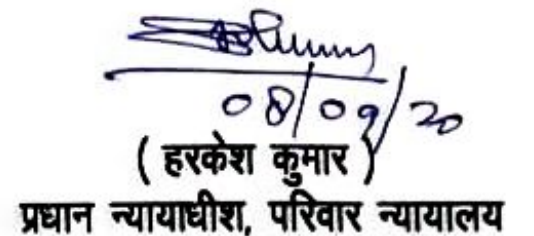 08/09/20
( हरकेश कुमार )
प्रधान न्यायाधीश, परिवार न्यायालय